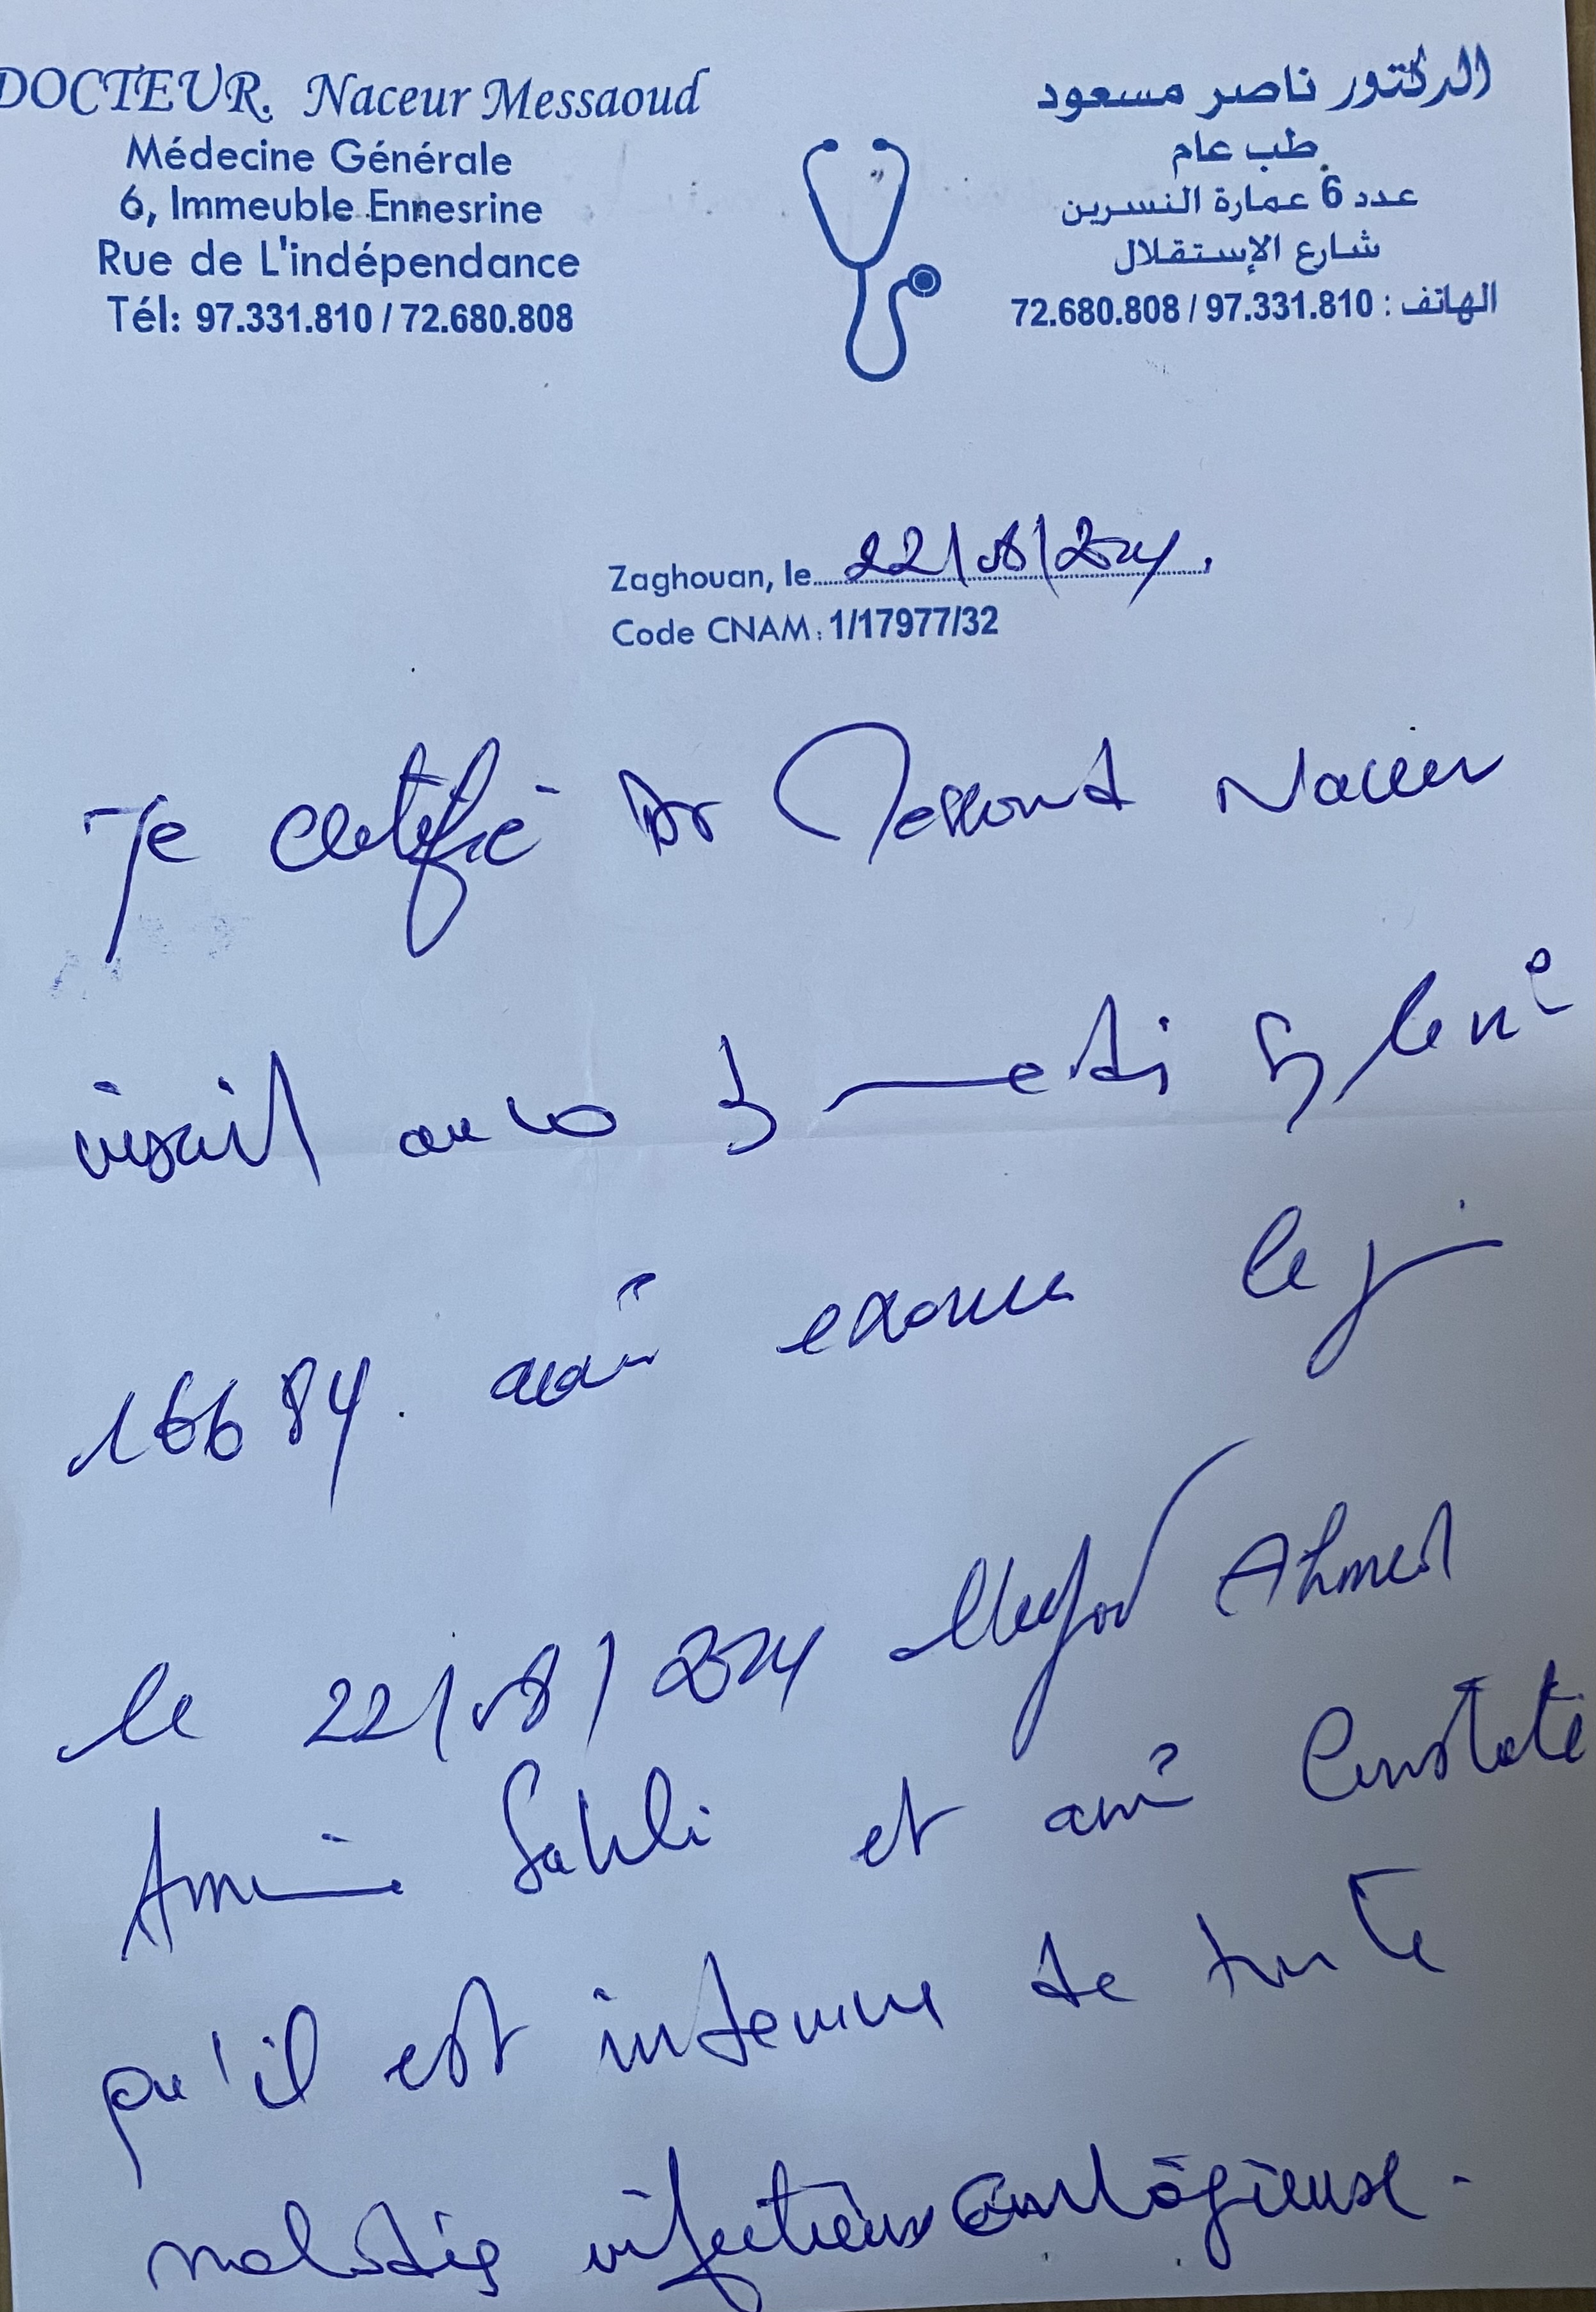 DOCTEUR. Naceur Messaoud
Médecine Générale
6, Immeuble Ennesrine
Rue de L'indépendance
Tél: 97.331.810 / 72.680.808
الدكتور ناصر مسعود
طب عام
عدد 6 عمارة النسرين
شارع الإستقلال
الهاتف : 97.331.810 / 72.680.808
Zaghouan, le 22/08/2024
Code CNAM : 1/17977/32
Je certifié Dr Messoud Naceur
inscrit au le n°
16684. avoir examiné le
le 22/08/2024 Ahmed
Amine Sahli et avoir Constaté
qu'il est indemne de toute
maladie infectieuse Contagieuse.